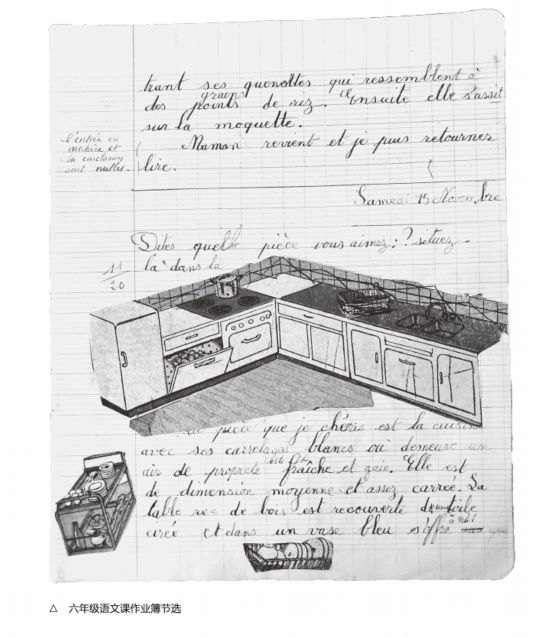 trant ses quenottes qui ressemblent à
grains
des points de riz. Ensuite elle s'assit
sur la moquette.
Maman revient et je puis retourner
lire.
l'entrée en
matière et
la conclusion
sont nulles.
Samedi 15 Novembre
Dites quelle pièce vous aimez: ? situez-
la dans la
11
20
pièce que je chéris est la cuisine
avec ses carrelages blancs où demeure un
air de propreté fraîche et gaie. Elle est
de dimension moyenne et assez carrée. Sa
table de bois est recouverte toile
cirée et dans un vase bleu s'offre
△ 六年级语文课作业簿节选